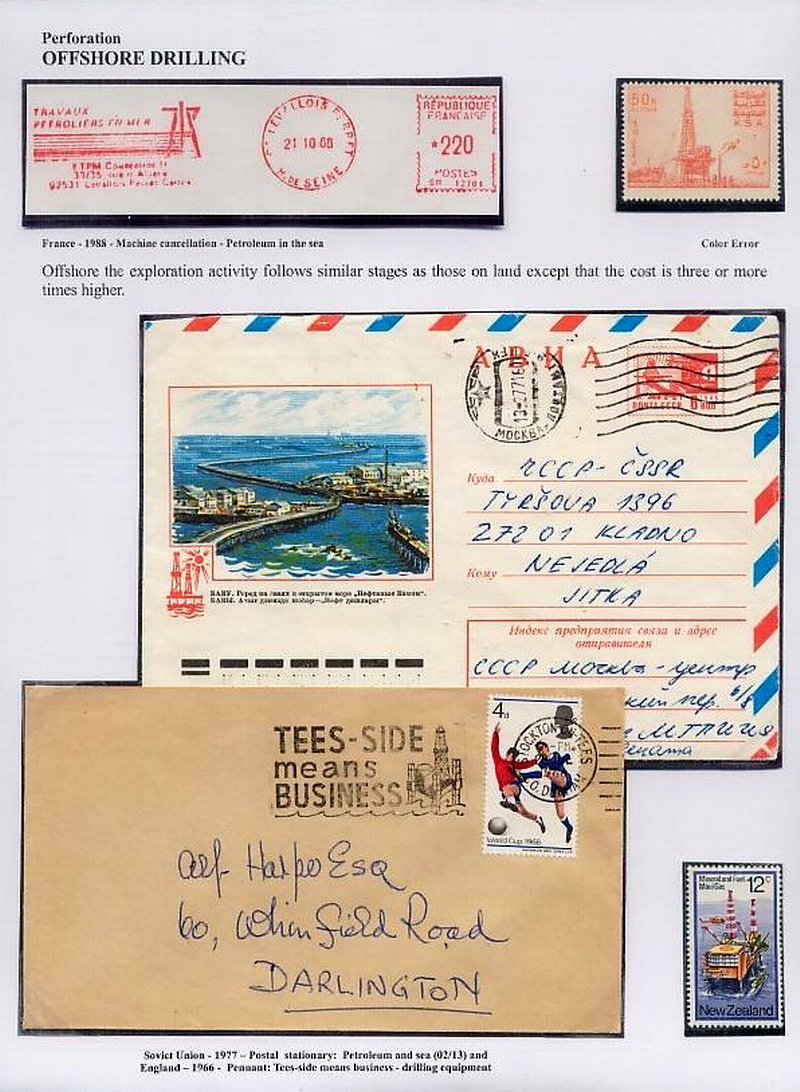 Perforation
OFFSHORE DRILLING
TRAVAUX
PETROLIERS EN MER
92531 Levallois Perret Cedex
LEVALLOIS PERRET
21 10 88
H. DE SEINE
RÉPUBLIQUE
FRANÇAISE
*220
POSTES
50
K.S.A.
France - 1988 - Machine cancellation - Petroleum in the sea
Color Error
Offshore the exploration activity follows similar stages as those on land except that the cost is three or more
times higher.
АВИА
МОСКВА
ПОЧТА СССР 6 КОП
Куда ЧССР - ČSSR
TYRŠOVA 1396
272 01 KLADNO
Кому NEJEDLÁ
JITKA
БАКУ. Город на сваях в открытом море „Нефтяные Камни“.
Индекс предприятия связи и адрес
отправителя
СССР Москва - центр
TEES-SIDE
means
BUSINESS
4d
STOCKTON-ON-TEES
CO. DURHAM
World Cup 1966
Alf Harpo Esq
60, Whinfield Road
DARLINGTON
Mineral and Fuel
Maui Gas
12c
New Zealand
Soviet Union - 1977 – Postal stationary: Petroleum and sea (02/13) and
England – 1966 - Pennant: Tees-side means business - drilling equipment